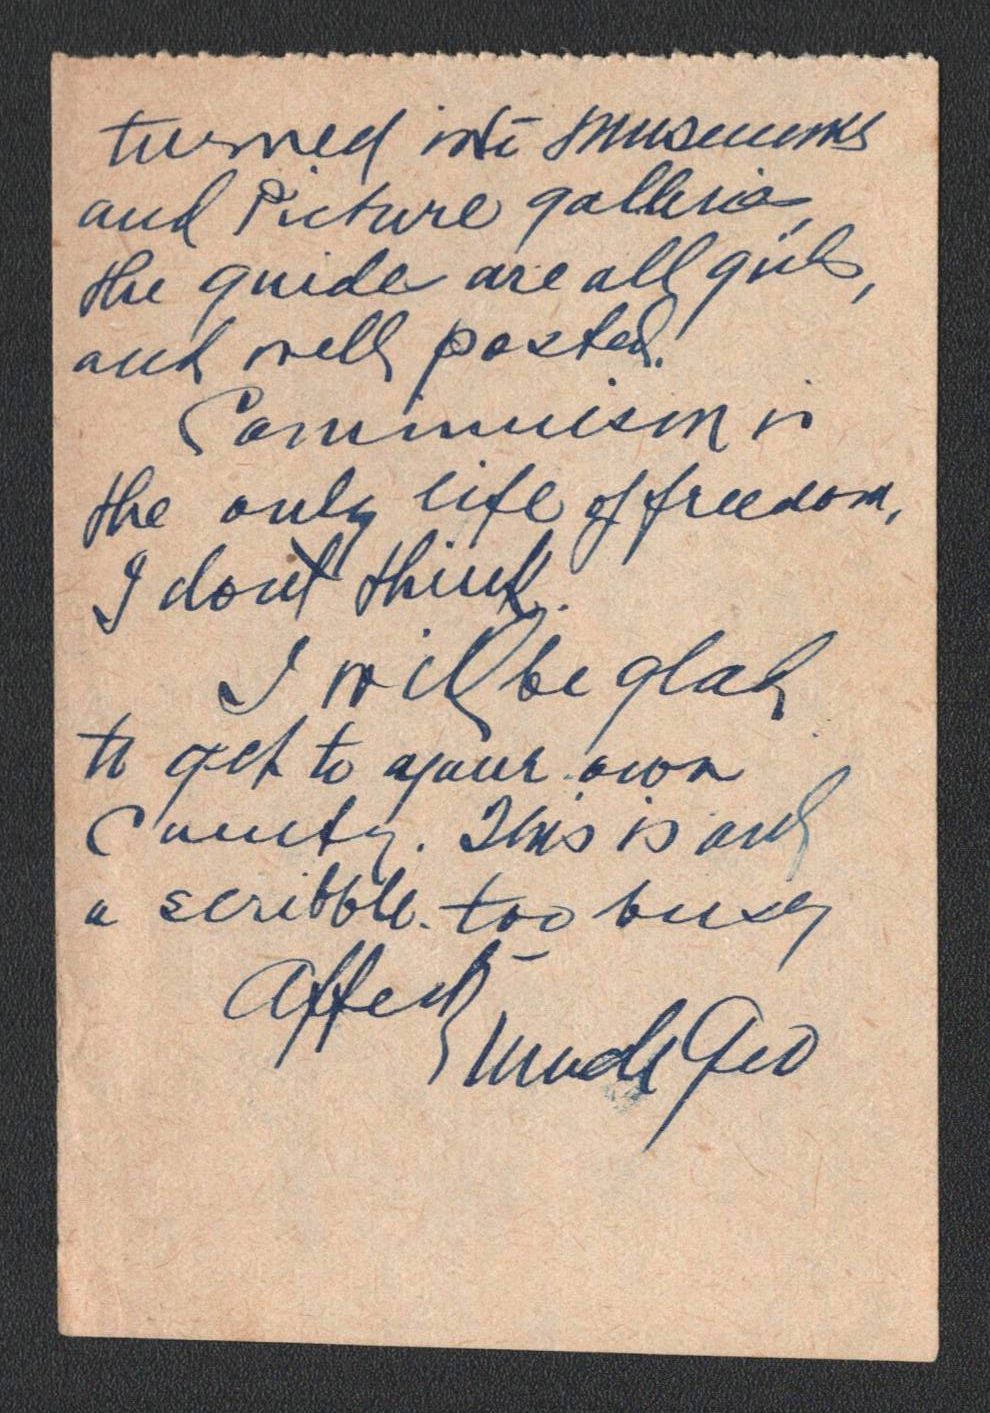 turned into Museums
and Picture galleries,
the guides are all girls,
and well posted.
Communism is
the only life of freedom,
I dont think.
I will be glad
to get to your own
County. This is only
a scribble. too busy
Affect
Uncle Geo